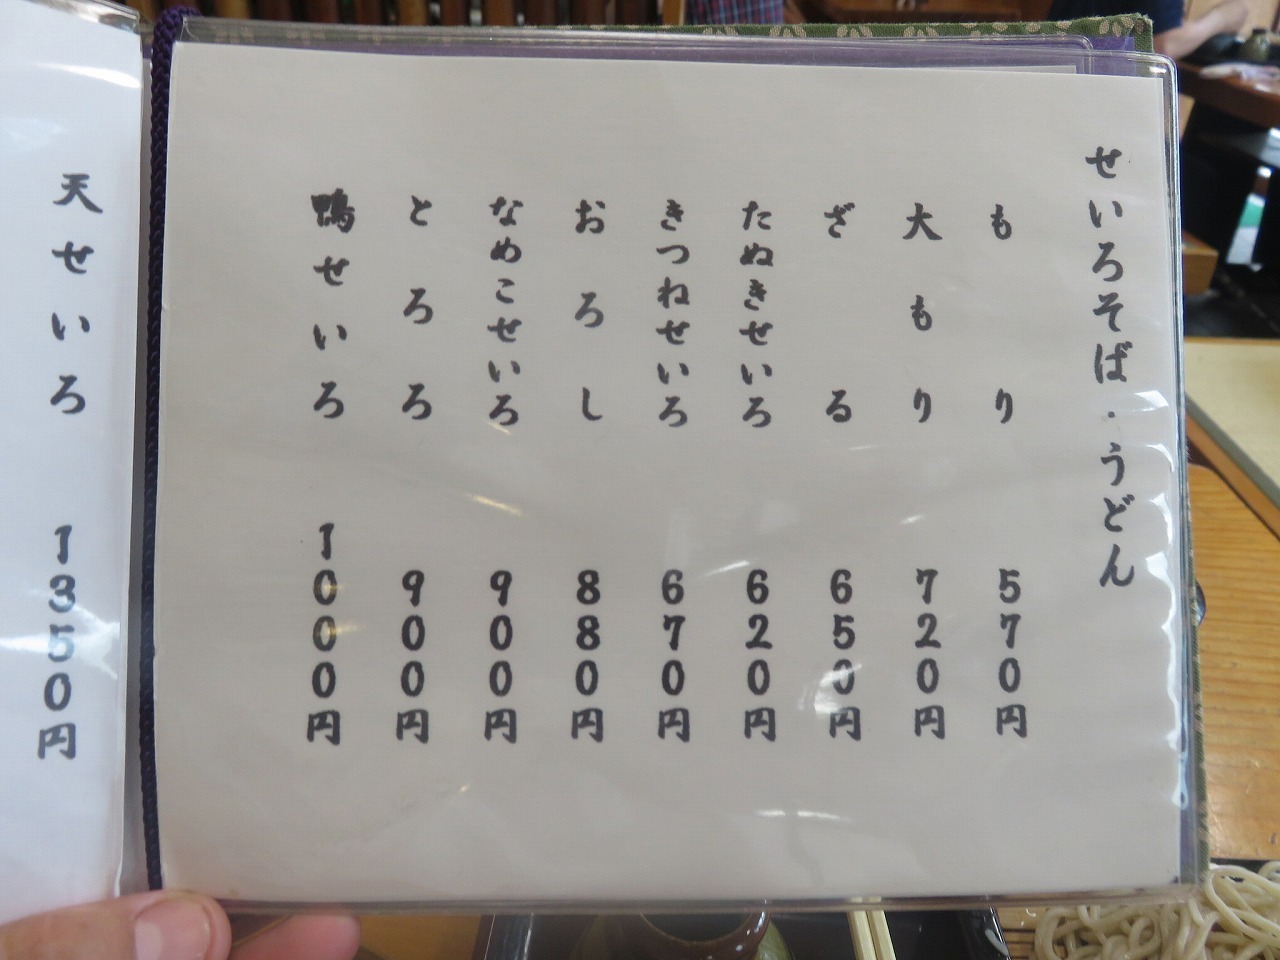 せいろそば・うどん
もり 570円
大もり 720円
ざる 650円
たぬきせいろ 620円
きつねせいろ 670円
おろし 880円
なめこせいろ 900円
とろろ 900円
鴨せいろ 1000円
天せいろ 1350円